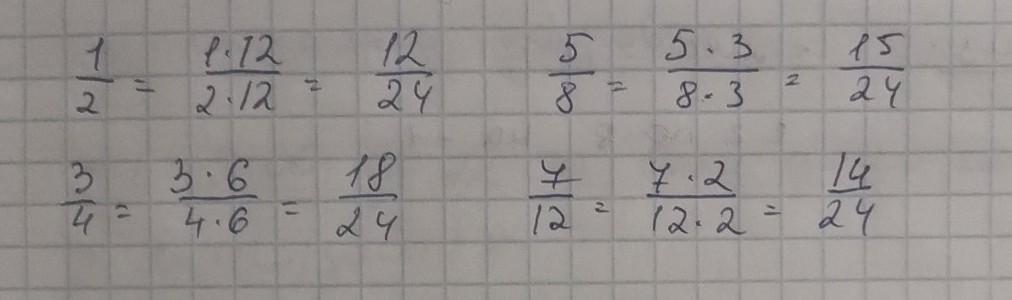 1/2 = 1·12/2·12 = 12/24 5/8 = 5·3/8·3 = 15/24
3/4 = 3·6/4·6 = 18/24 7/12 = 7·2/12·2 = 14/24